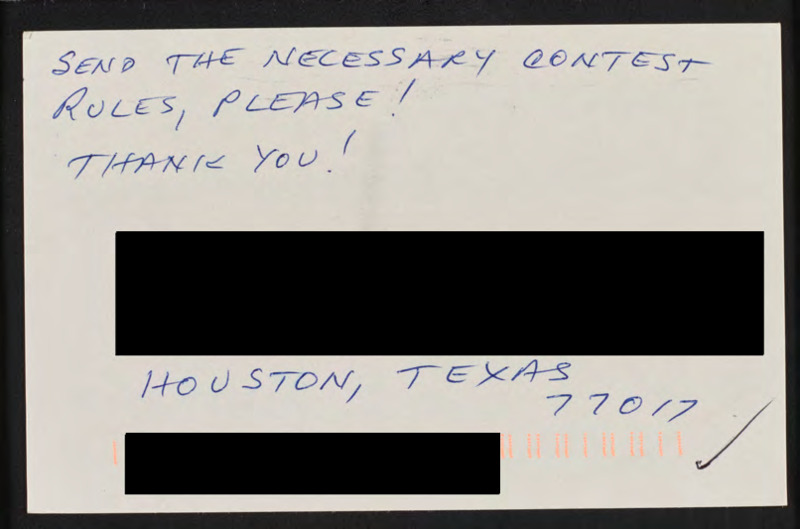 SEND THE NECESSARY CONTEST
RULES, PLEASE!
THANK YOU!
HOUSTON, TEXAS
77017